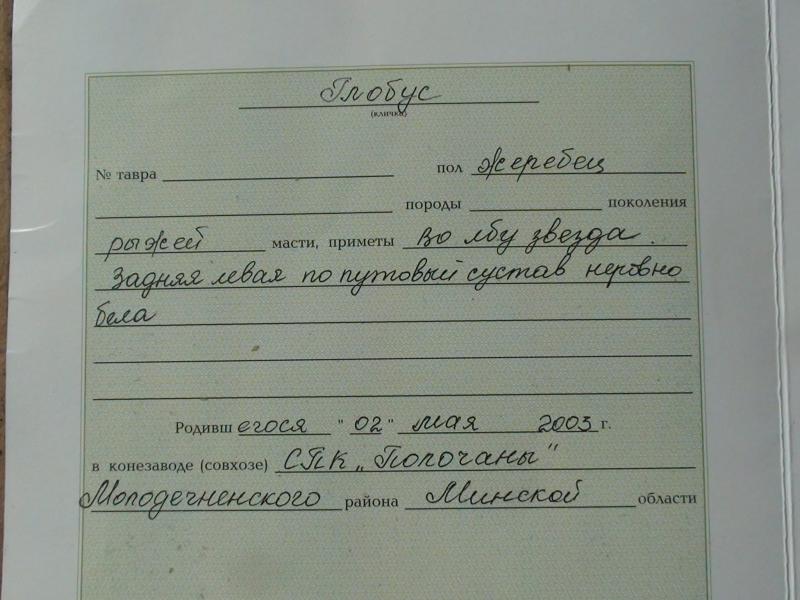 Глобус
(кличка)
№ тавра пол жеребец
породы поколения
рыжей масти, приметы во лбу звезда.
Задняя левая по путовый сустав неровно
бела
Родивш егося "02" мая 2003 г.
в конезаводе (совхозе) СПК „Полочаны"
Молодечненского района Минской области